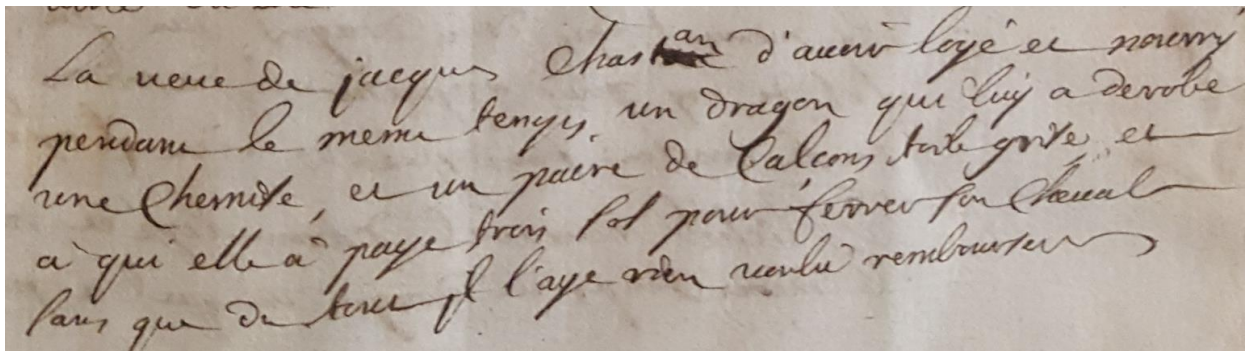 La veuve de jacques Chastan d'avoir logé et nourry
pendant le meme temps, un dragon qui luy a derobé
une Chemise, et un paire de Calçons toile grise, et
à qui elle à payé trois sol pour ferrer son Cheval
sans que du tout il l'aye rien voulu rembourser